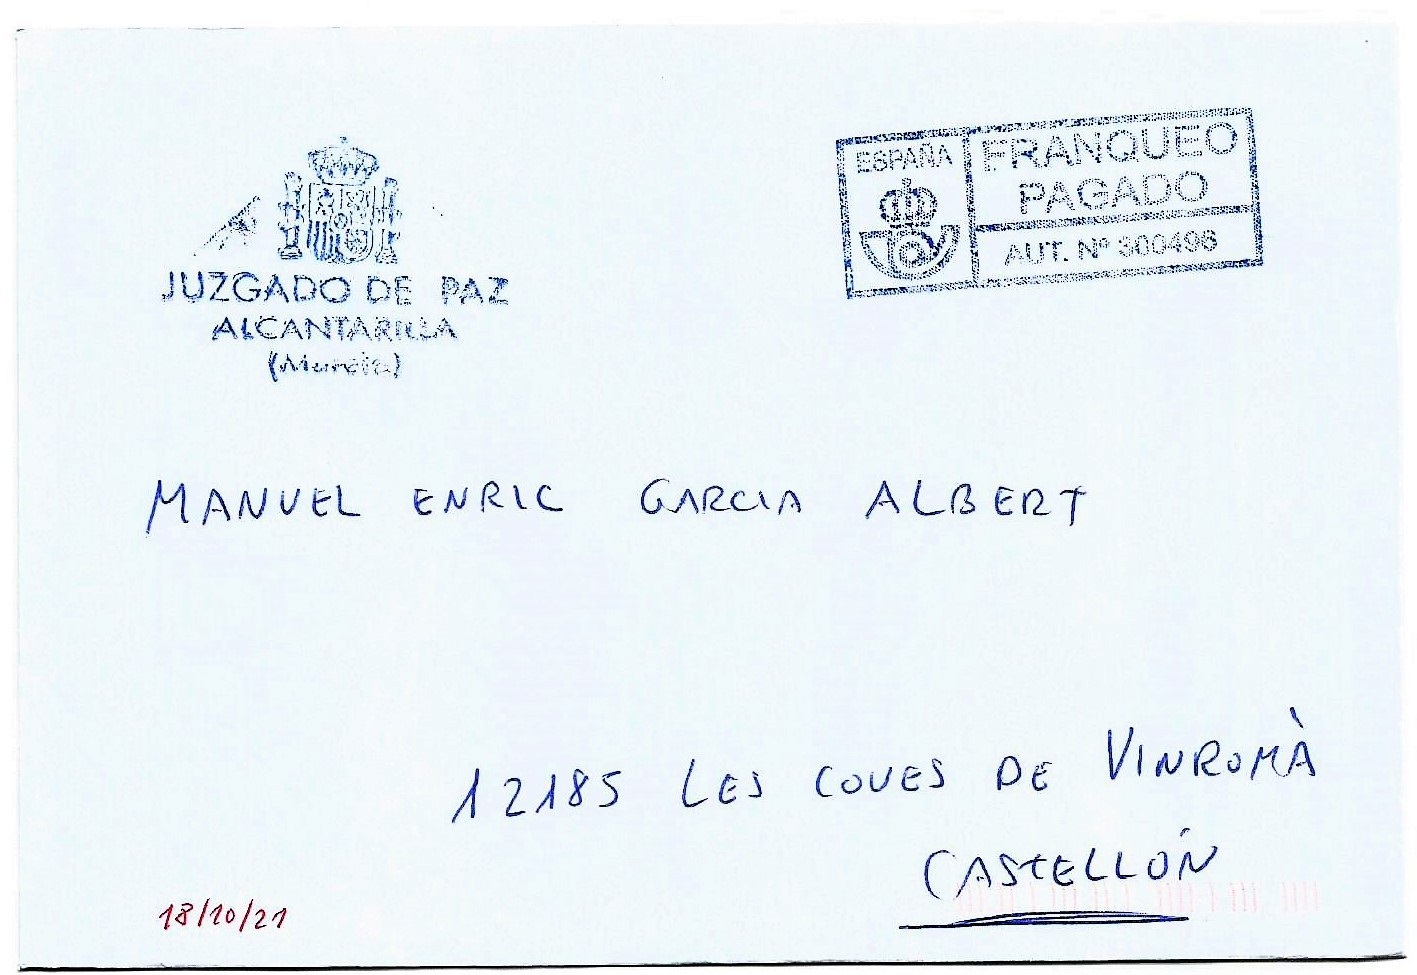 JUZGADO DE PAZ
ALCANTARILLA
(Murcia)
ESPAÑA
FRANQUEO
PAGADO
AUT. Nº 300496
MANUEL ENRIC GARCIA ALBERT
12185 LES COVES DE VINROMÀ
CASTELLÓN
18/10/21